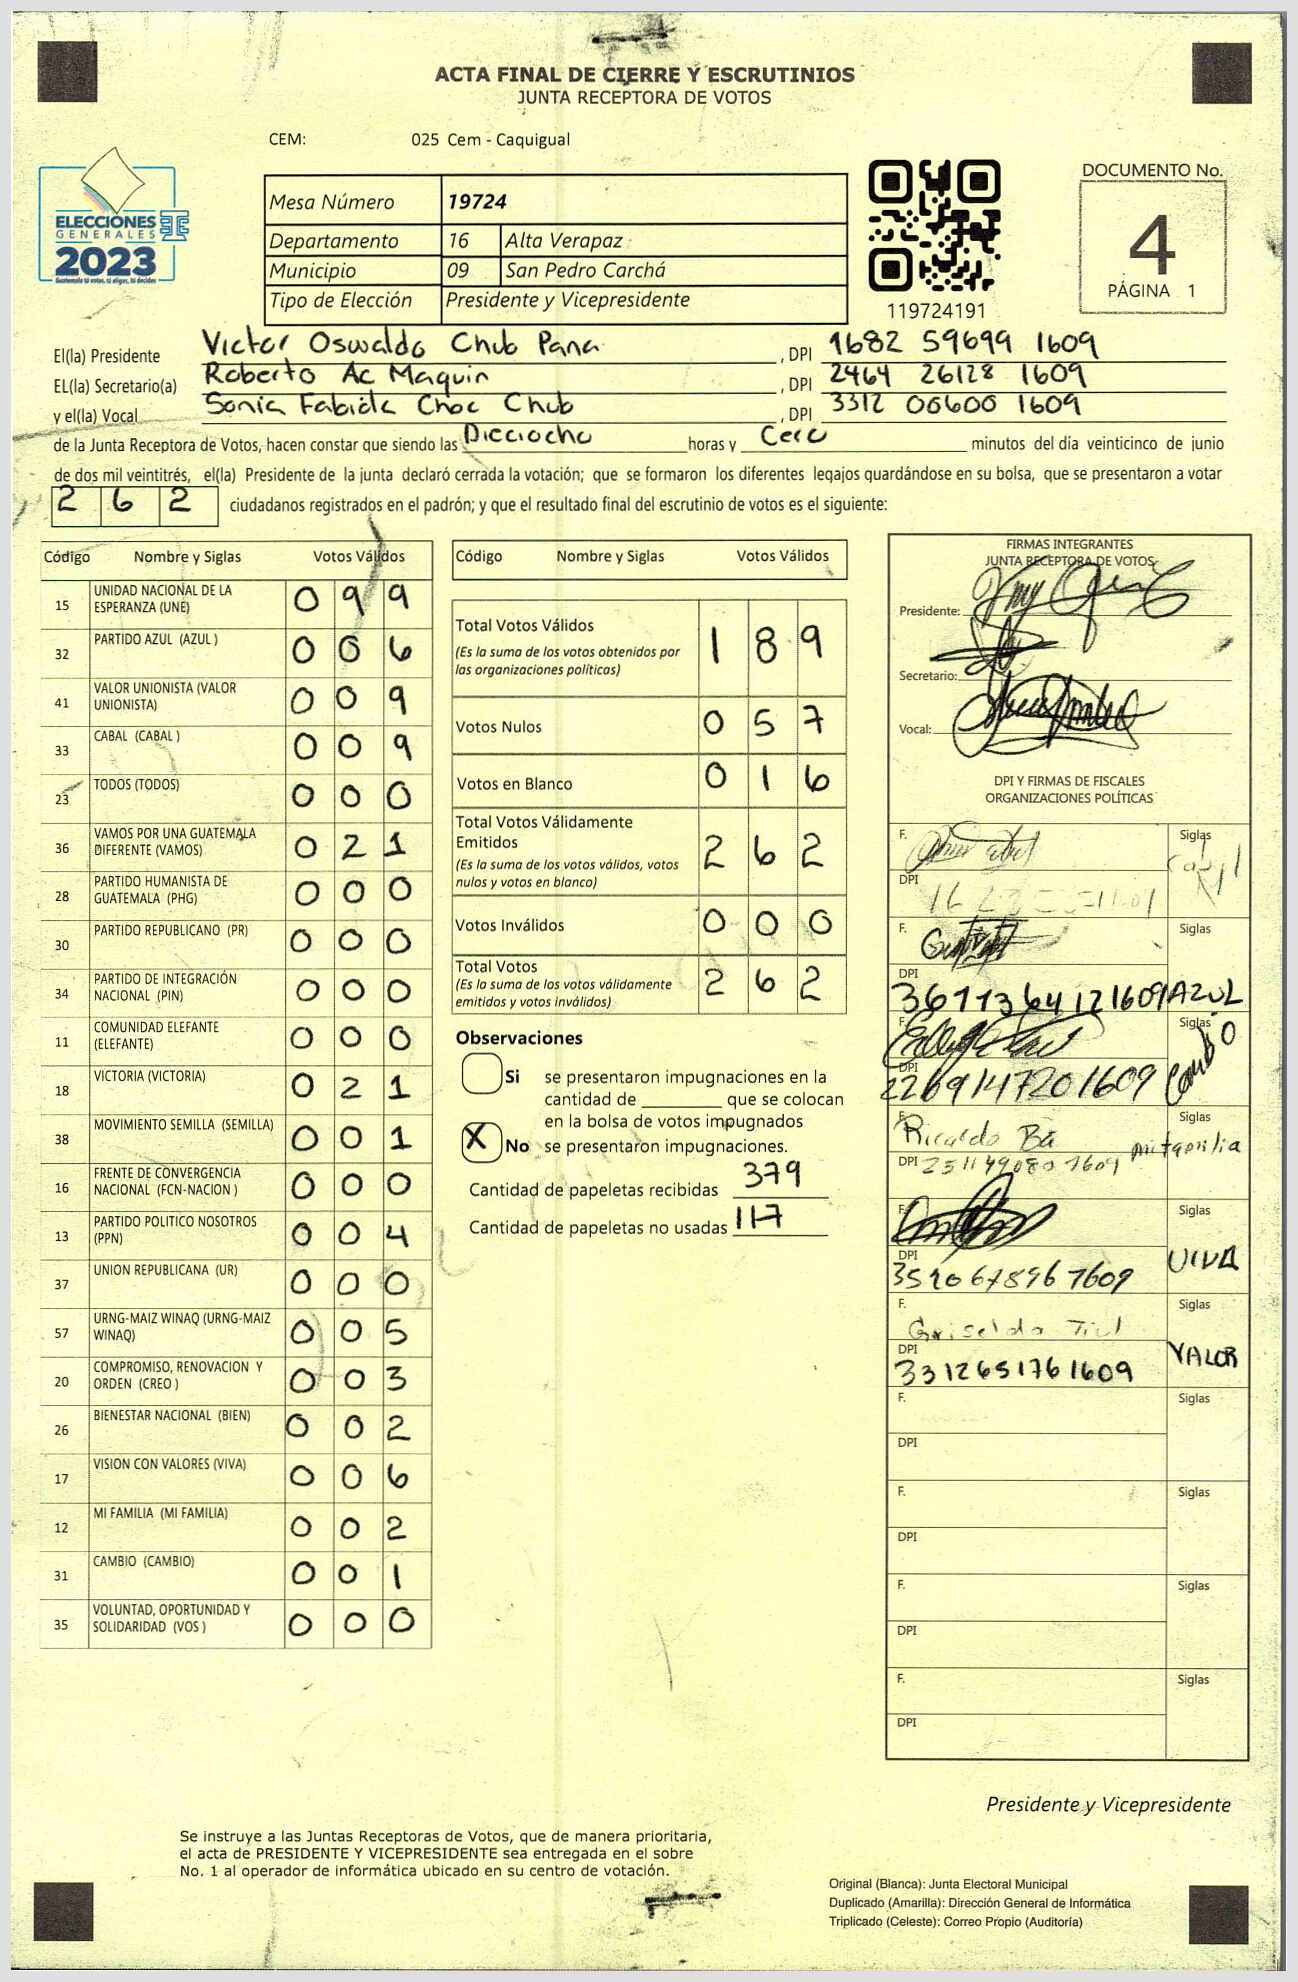 ACTA FINAL DE CIERRE Y ESCRUTINIOS
JUNTA RECEPTORA DE VOTOS
CEM: 025 Cem - Caquigual
ELECCIONES
GENERALES
2023
Guatemala tú votas, tú eliges, tú decides
Mesa Número 19724
Departamento 16 Alta Verapaz
Municipio 09 San Pedro Carchá
Tipo de Elección Presidente y Vicepresidente
119724191
DOCUMENTO No.
4
PÁGINA 1
El(la) Presidente Victor Oswaldo Chub Pana , DPI 1682 59699 1609
EL(la) Secretario(a) Roberto Ac Maquin , DPI 2464 26128 1609
y el(la) Vocal Sonia Fabiola Choc Chub , DPI 3312 00600 1609
de la Junta Receptora de Votos, hacen constar que siendo las Dieciocho horas y Cero minutos del día veinticinco de junio
de dos mil veintitrés, el(la) Presidente de la junta declaró cerrada la votación; que se formaron los diferentes legajos guardándose en su bolsa, que se presentaron a votar
2 6 2 ciudadanos registrados en el padrón; y que el resultado final del escrutinio de votos es el siguiente:
Código Nombre y Siglas Votos Válidos
15 UNIDAD NACIONAL DE LA ESPERANZA (UNE) 0 9 9
32 PARTIDO AZUL (AZUL ) 0 0 6
41 VALOR UNIONISTA (VALOR UNIONISTA) 0 0 9
33 CABAL (CABAL ) 0 0 9
23 TODOS (TODOS) 0 0 0
36 VAMOS POR UNA GUATEMALA DIFERENTE (VAMOS) 0 2 1
28 PARTIDO HUMANISTA DE GUATEMALA (PHG) 0 0 0
30 PARTIDO REPUBLICANO (PR) 0 0 0
34 PARTIDO DE INTEGRACIÓN NACIONAL (PIN) 0 0 0
11 COMUNIDAD ELEFANTE (ELEFANTE) 0 0 0
18 VICTORIA (VICTORIA) 0 2 1
38 MOVIMIENTO SEMILLA (SEMILLA) 0 0 1
16 FRENTE DE CONVERGENCIA NACIONAL (FCN-NACION ) 0 0 0
13 PARTIDO POLITICO NOSOTROS (PPN) 0 0 4
37 UNION REPUBLICANA (UR) 0 0 0
57 URNG-MAIZ WINAQ (URNG-MAIZ WINAQ) 0 0 5
20 COMPROMISO, RENOVACION Y ORDEN (CREO ) 0 0 3
26 BIENESTAR NACIONAL (BIEN) 0 0 2
17 VISION CON VALORES (VIVA) 0 0 6
12 MI FAMILIA (MI FAMILIA) 0 0 2
31 CAMBIO (CAMBIO) 0 0 1
35 VOLUNTAD, OPORTUNIDAD Y SOLIDARIDAD (VOS ) 0 0 0
Código Nombre y Siglas Votos Válidos
Total Votos Válidos 1 8 9
(Es la suma de los votos obtenidos por
las organizaciones políticas)
Votos Nulos 0 5 7
Votos en Blanco 0 1 6
Total Votos Válidamente
Emitidos 2 6 2
(Es la suma de los votos válidos, votos
nulos y votos en blanco)
Votos Inválidos 0 0 0
Total Votos 2 6 2
(Es la suma de los votos válidamente
emitidos y votos inválidos)
Observaciones
Si se presentaron impugnaciones en la
cantidad de ________ que se colocan
en la bolsa de votos impugnados
X No se presentaron impugnaciones.
Cantidad de papeletas recibidas 379
Cantidad de papeletas no usadas 117
FIRMAS INTEGRANTES
JUNTA RECEPTORA DE VOTOS
Presidente:
Secretario:
Vocal:
DPI Y FIRMAS DE FISCALES
ORGANIZACIONES POLÍTICAS
F. Siglas
DPI
F. Siglas
DPI 3611364121609 AZUL
F. Siglas Cambio
DPI 2269147201609
F. Ricardo Ba Siglas
DPI 2511490801609 mifamilia
F. Siglas
DPI 3590678967609 VIVA
F. Griselda Tiul Siglas
DPI 3312651761609 VALOR
F. Siglas
DPI
F. Siglas
DPI
F. Siglas
DPI
F. Siglas
DPI
Presidente y Vicepresidente
Se instruye a las Juntas Receptoras de Votos, que de manera prioritaria,
el acta de PRESIDENTE Y VICEPRESIDENTE sea entregada en el sobre
No. 1 al operador de informática ubicado en su centro de votación.
Original (Blanca): Junta Electoral Municipal
Duplicado (Amarilla): Dirección General de Informática
Triplicado (Celeste): Correo Propio (Auditoría)